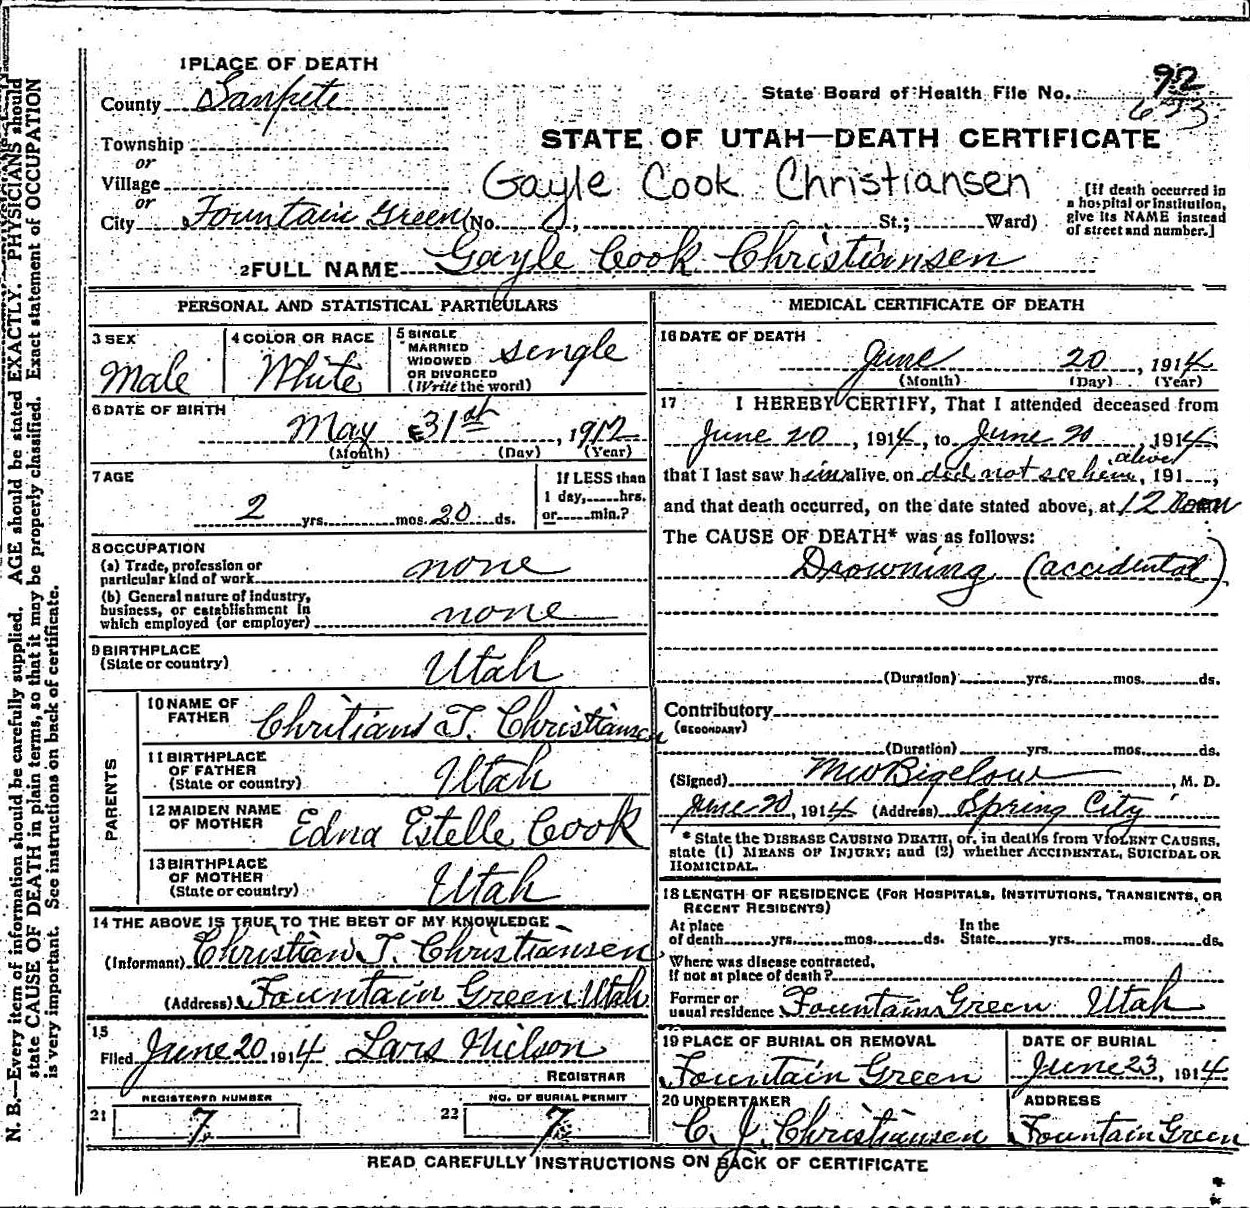 1 PLACE OF DEATH
County Sanpete
State Board of Health File No. 92
673
Township
or
Village
or
City Fountain Green (No. St.; Ward)
STATE OF UTAH—DEATH CERTIFICATE
Gayle Cook Christiansen
[If death occurred in
a hospital or institution,
give its NAME instead
of street and number.]
2 FULL NAME Gayle Cook Christiansen
PERSONAL AND STATISTICAL PARTICULARS
3 SEX
Male
4 COLOR OR RACE
White
5 SINGLE
MARRIED
WIDOWED
OR DIVORCED
(Write the word)
single
6 DATE OF BIRTH
May 31st, 1912
(Month) (Day) (Year)
7 AGE
2 yrs. mos. 20 ds.
If LESS than
1 day, hrs.
or min.?
8 OCCUPATION
(a) Trade, profession or
particular kind of work none
(b) General nature of industry,
business, or establishment in
which employed (or employer) none
9 BIRTHPLACE
(State or country) Utah
PARENTS
10 NAME OF
FATHER Chritians T. Christiansen
11 BIRTHPLACE
OF FATHER
(State or country) Utah
12 MAIDEN NAME
OF MOTHER Edna Estelle Cook
13 BIRTHPLACE
OF MOTHER
(State or country) Utah
14 THE ABOVE IS TRUE TO THE BEST OF MY KNOWLEDGE
(Informant) Christian T. Christiansen
(Address) Fountain Green Utah
15
Filed June 20 1914 Lars Nilson
REGISTRAR
21 REGISTERED NUMBER
7
22 NO. OF BURIAL PERMIT
7
MEDICAL CERTIFICATE OF DEATH
16 DATE OF DEATH
June 20, 1914
(Month) (Day) (Year)
17 I HEREBY CERTIFY, That I attended deceased from
June 20, 1914, to June 20, 1914
that I last saw him alive on did not see him alive, 191 ,
and that death occurred, on the date stated above, at 12 noon
The CAUSE OF DEATH* was as follows:
Drowning (accidental)
(Duration) yrs. mos. ds.
Contributory
(SECONDARY)
(Duration) yrs. mos. ds.
(Signed) MW Bigelow, M. D.
June 20, 1914 (Address) Spring City
* State the DISEASE CAUSING DEATH, or, in deaths from VIOLENT CAUSES,
state (1) MEANS OF INJURY; and (2) whether ACCIDENTAL, SUICIDAL OR
HOMICIDAL.
18 LENGTH OF RESIDENCE (FOR HOSPITALS, INSTITUTIONS, TRANSIENTS, OR
RECENT RESIDENTS)
At place
of death yrs. mos. ds.
In the
State yrs. mos. ds.
Where was disease contracted,
if not at place of death?
Former or
usual residence Fountain Green Utah
19 PLACE OF BURIAL OR REMOVAL
Fountain Green
DATE OF BURIAL
June 23, 1914
20 UNDERTAKER
C. J. Christiansen
ADDRESS
Fountain Green
READ CAREFULLY INSTRUCTIONS ON BACK OF CERTIFICATE
N. B.—Every item of information should be carefully supplied. AGE should be stated EXACTLY. PHYSICIANS should
state CAUSE OF DEATH in plain terms, so that it may be properly classified. Exact statement of OCCUPATION
is very important. See instructions on back of certificate.